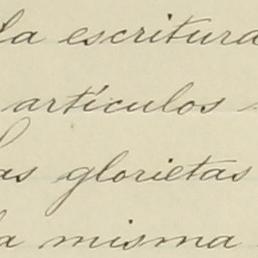 La escritura
artículos
las glorietas
la misma